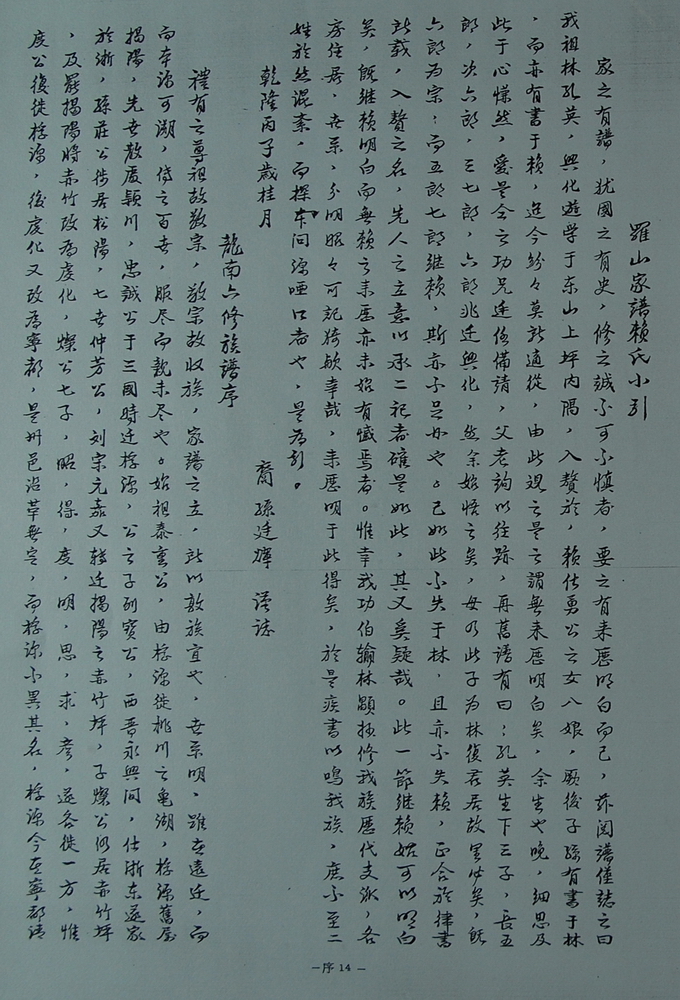 羅山家譜賴氏小引
家之有譜，犹國之有史，修之誠不可不慎者，要之有来歷明白而已，茲閱譜僅誌之曰
我祖林孔英，興化遊學于东山上坪内隅，入贅於，賴仕勇公之女八娘，厥後子孫有書于林
，而亦有書于賴，迄今紛々莫能適從，由此观之是之謂無来歷明白矣，余生也晚，細思及
此于心慊然，爰是令之功兄廷伍備請，父老詢以往跡，再舊譜有曰：孔英生下三子，長五
郎，次六郎，三七郎，六郎兆迁興化，然余始悟之矣，毋乃此子为林復君居故里少矣，既
六郎为宗；而五郎七郎继賴，斯亦不足如也。已如此不失于林，且亦不失賴，正合於律書
所载，入赘之名，先人之立意以承二祀者確是如此，其又奚疑哉。此一節继賴始可以明白
矣，既继賴明白而無賴之来歷亦未始有慽焉者。惟幸我功伯翰林顯扬修我族歷代支派，各
房住居，世系，分明昭々可記猗欤幸哉，来歷明于此得矣，於是疾書以鳴我族，庶不至二
姓於然混紊，而探本问源哑口者也，是为引。
乾隆丙子歲桂月
裔孫廷輝 谨誌
龍南六修族譜序
禮有之尊祖故敬宗，敬宗故收族，家譜之立，所以敦族宜也，世系明，雖在遠迁，而
向本源可溯，传之百世，服尽而親未尽也。始祖泰重公，由桴源徙桃川之龟湖，桴源舊屋
揭陽，先世散處颖川，忠誠公于三國時迁桴源，公之子列宝公，西晋永興间，仕浙东遂家
於浙，孫莊公徙居松陽，七世仲芳公，刘宗元嘉又转迁揭陽之赤竹坪，子燦公仍居赤竹坪
，及罷揭陽將赤竹改为虔化，燦公七子，昭，得，度，明，思，求，彦，遂各徙一方，惟
度公復徙桴源，後虔化又改为寧都，是州邑沿革無定，而桴源不異其名，桴源今至寧都清
－序 14－